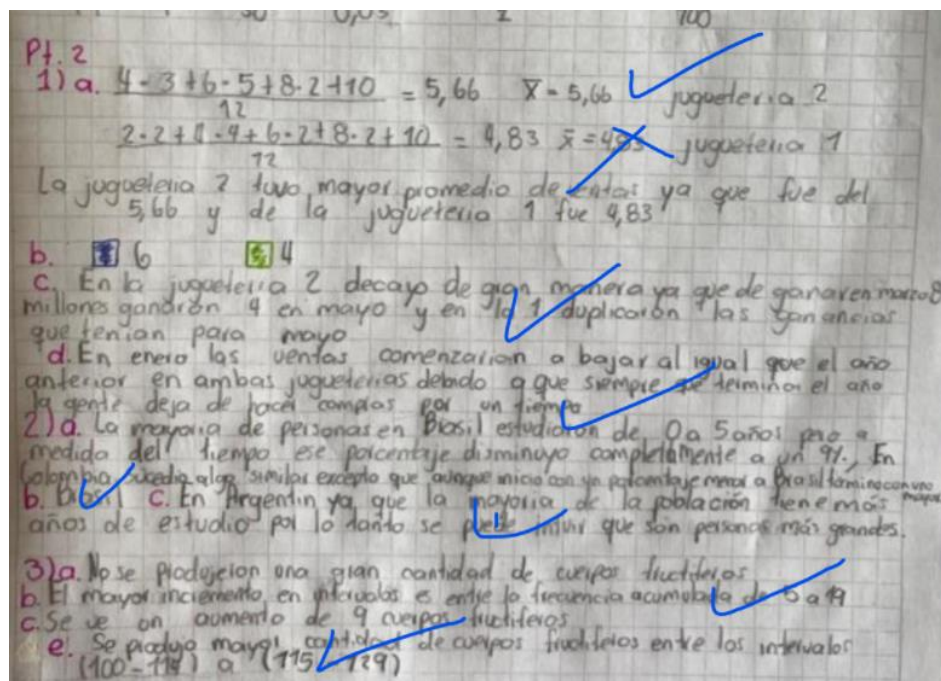 30 0,05 2 100
Pt. 2
1) a. 4·3+6·5+8·2+10 / 12 = 5,66 x̄ = 5,66 jugueteria 2
2·2+4·4+6·2+8·2+10 / 12 = 4,83 x̄ = jugueteria 1
La jugueteria 2 tuvo mayor promedio de ya que fue del
5,66 y de la jugueteria 1 fue 4,83
b. 6 4
c. En la jugueteria 2 decayo de gran manera ya que de ganar en marzo 8
millones gandrón 4 en mayo y en la 1 duplicarón las ganancias
que tenian para mayo
d. En enero las ventas comenzarian a bajar al igual que el año
anterior en ambas jugueterias debido a que siempre que termina el año
la gente deja de hacer compras por un tiempo
2) a. La mayoria de personas en Brasil estudiarón de 0 a 5 años pero a
medida del tiempo ese porcentaje disminuyo completamente a un 9%, En
Colombia sucedio algo similar excepto que aunque inicio con un porcentaje menor a Brasil termino con uno mayor
b. Brasil c. En Argentin ya que la mayoria de la población tiene más
años de estudio por lo tanto se puede que son personas más grandes.
3) a. No se produjeron una gran cantidad de cuerpos fructiferos
b. El mayor incremento en intervalos es entre la frecuencia acumulada de a 19
c. Se ve un aumento de 9 cuerpos fructiferos
e. Se produjo mayor cantidad de cuerpos fructiferos entre los intervalos
(100-114) a (115-129)